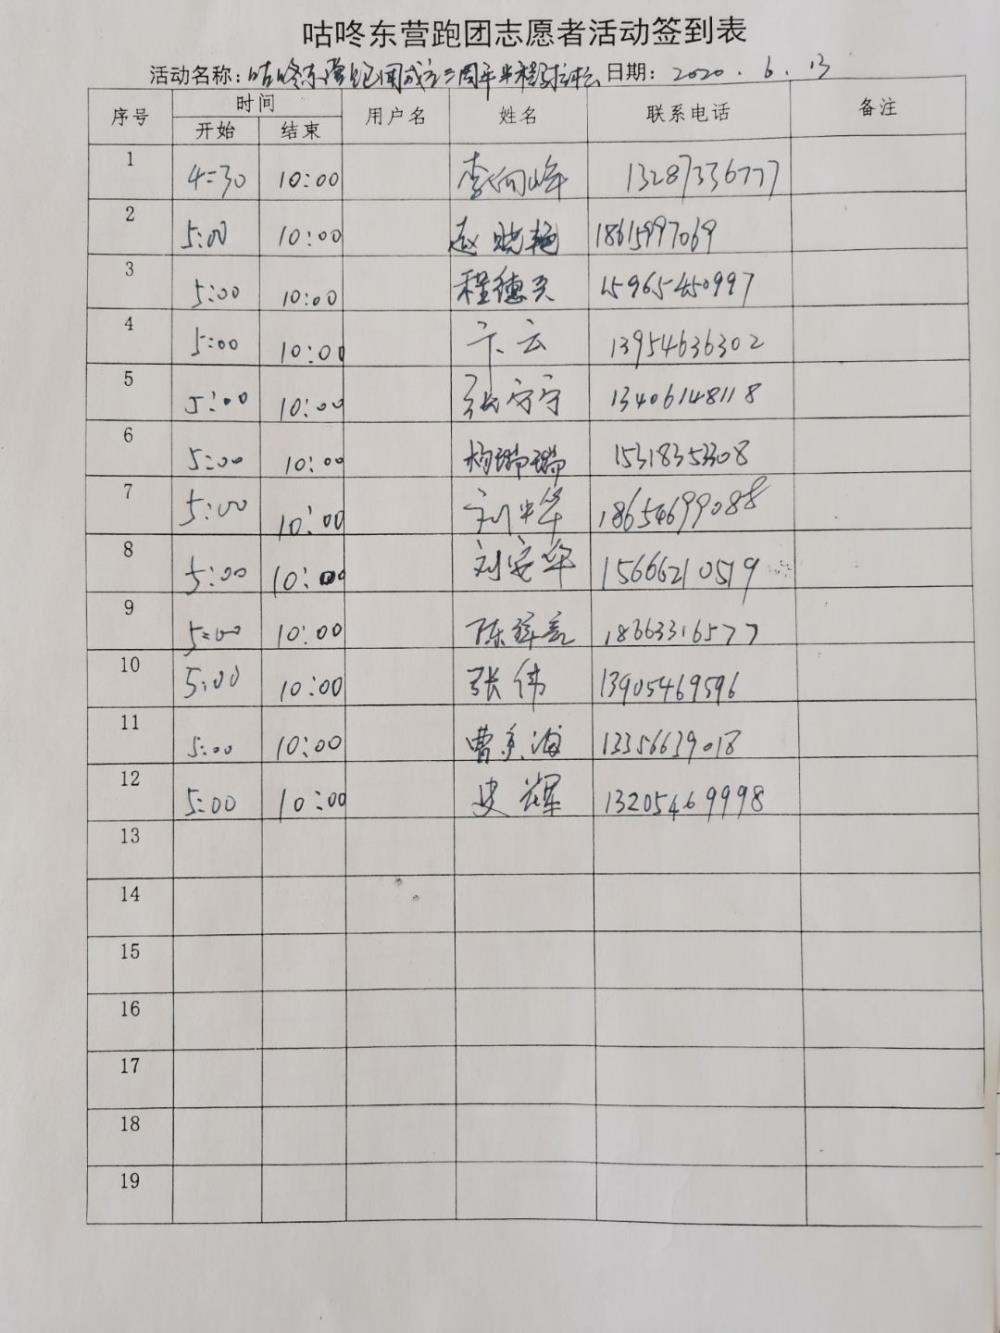 咕咚东营跑团志愿者活动签到表
活动名称：咕咚东营跑团成立三周年半程马拉松 日期：2020.6.13
序号 时间 用户名 姓名 联系电话 备注
开始 结束
1 4:30 10:00 李向峰 13287336777
2 5:00 10:00 赵晓艳 18615997069
3 5:00 10:00 程德 15965450997
4 5:00 10:00 卞云 13954636302
5 5:00 10:00 张宁宁 13406148118
6 5:00 10:00 杨瑞瑞 15318353308
7 5:00 10:00 刘中华 18654699088
8 5:00 10:00 刘安华 15666210519
9 5:00 10:00 陈 18663316577
10 5:00 10:00 张伟 13905469596
11 5:00 10:00 曹 海 13356639018
12 5:00 10:00 史辉 13205469998
13
14
15
16
17
18
19